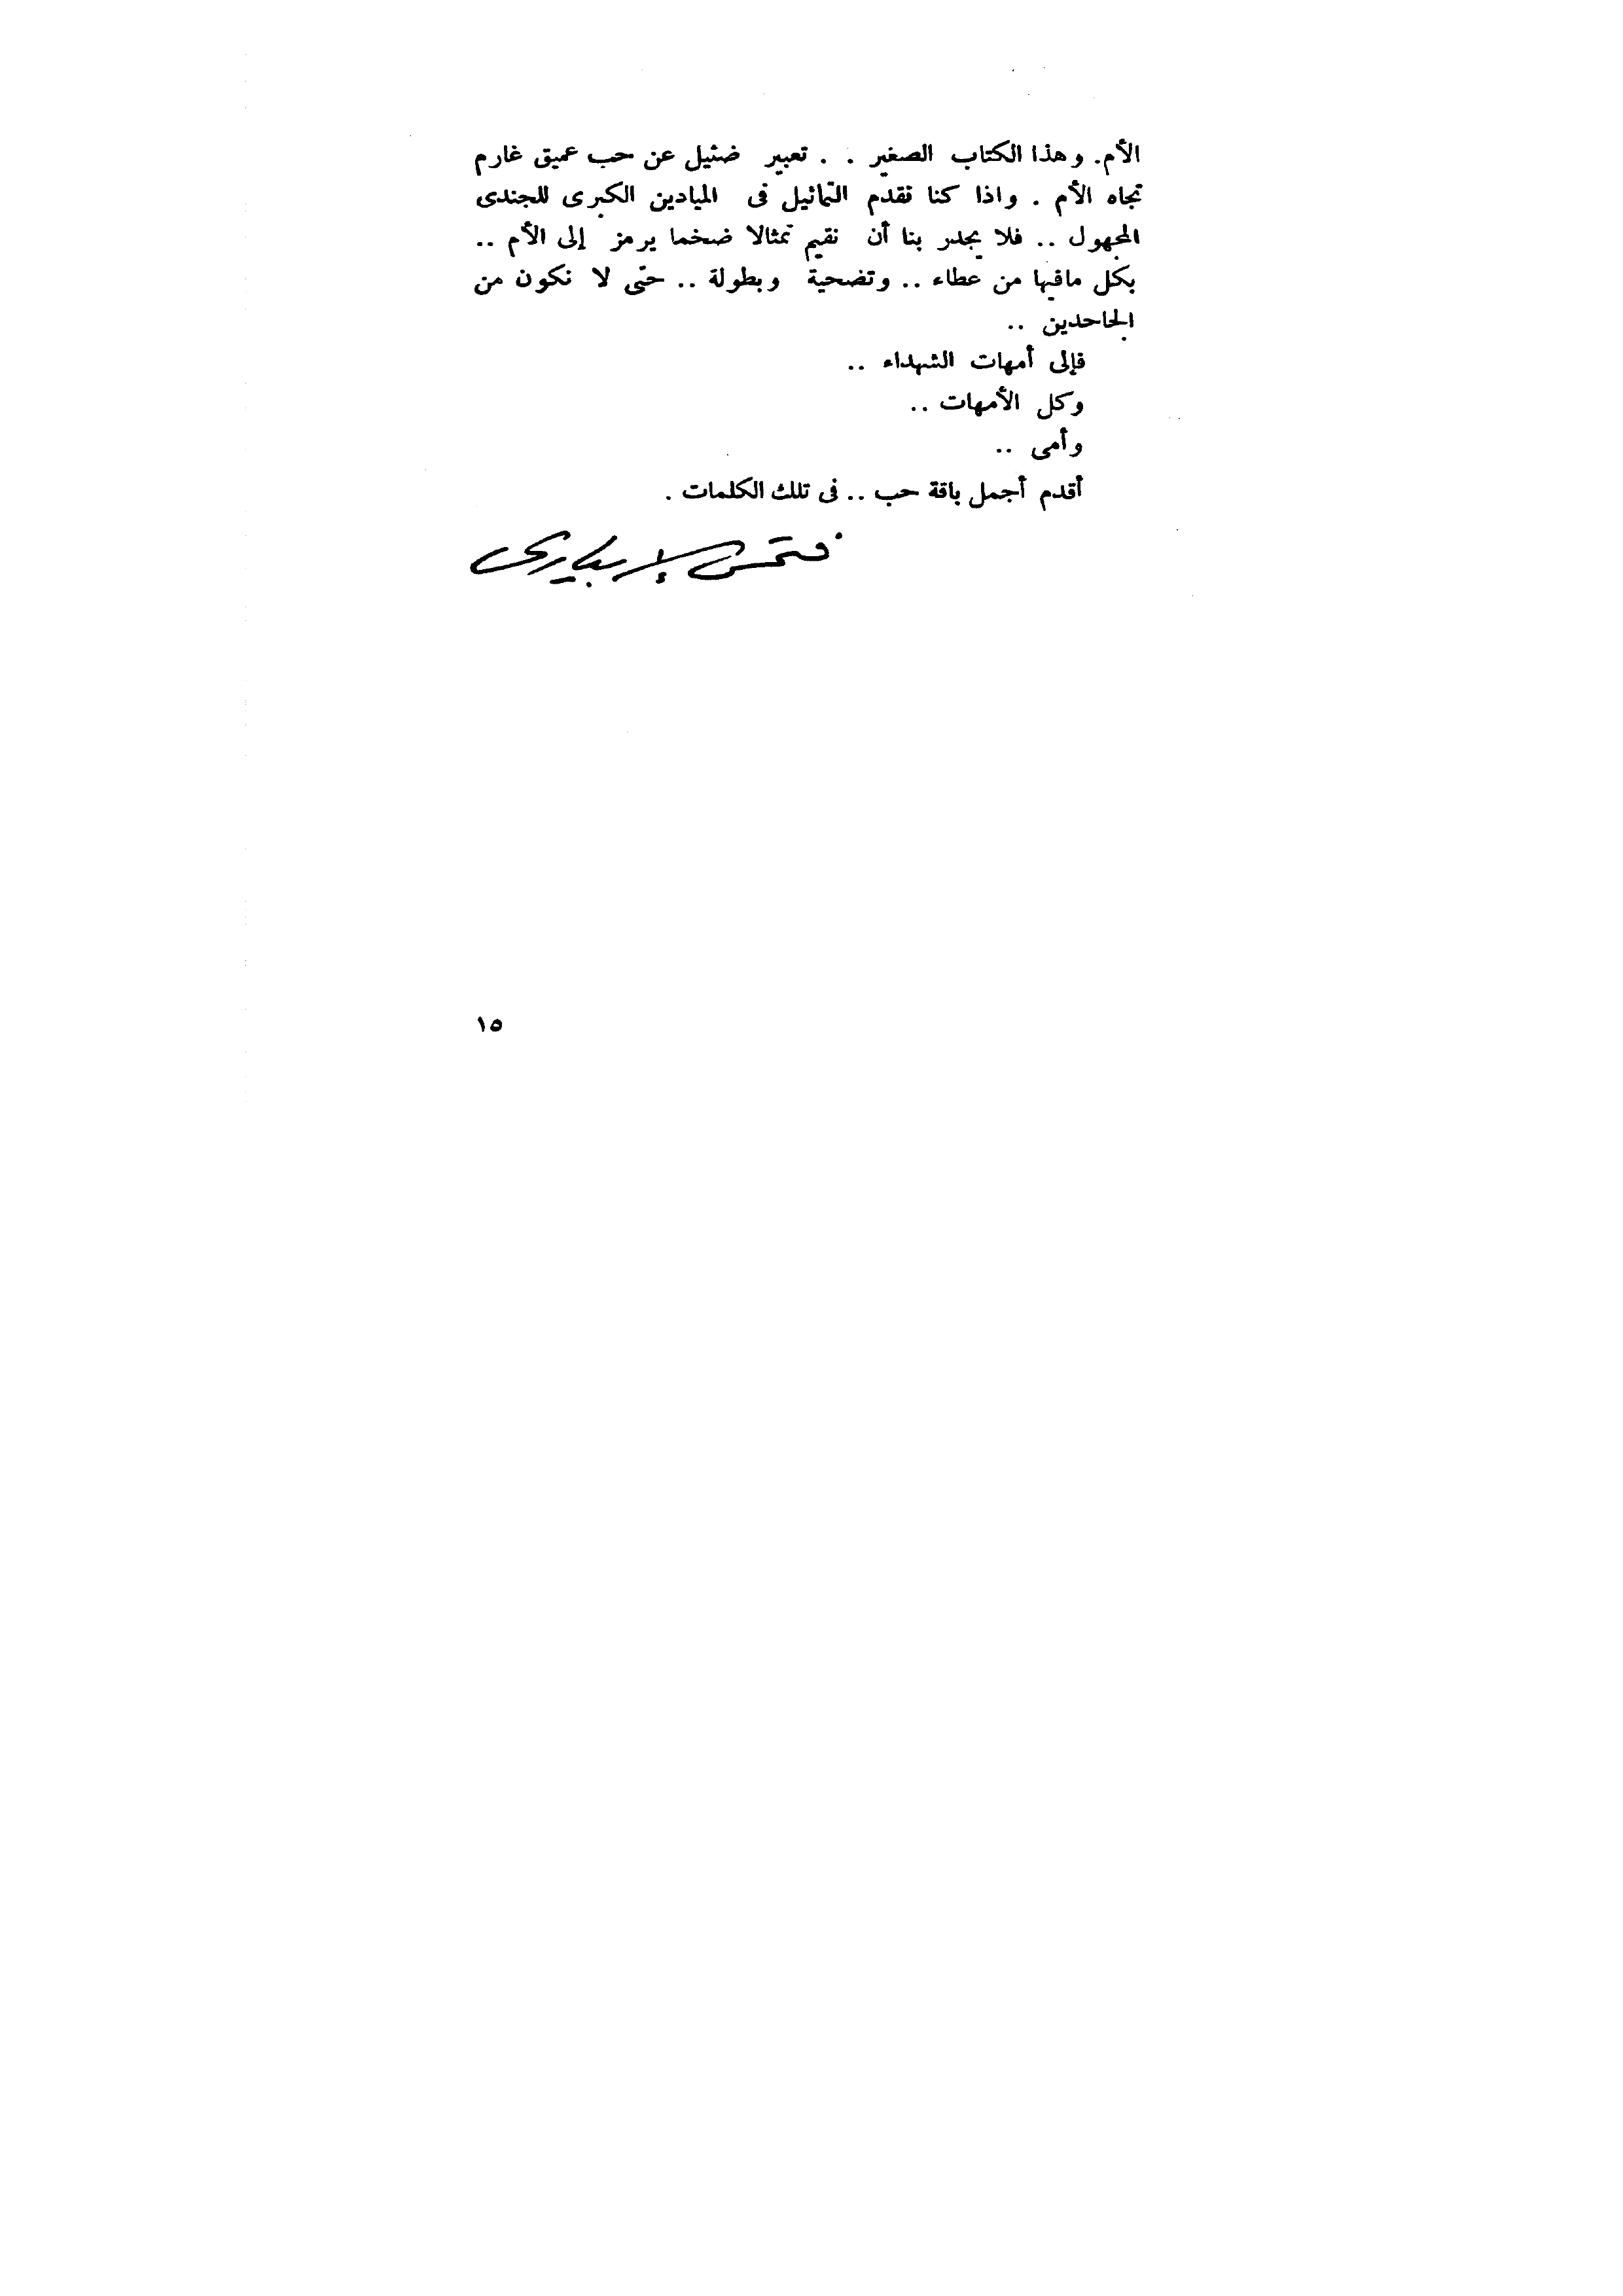 الأم. وهذا الكتاب الصغير . . تعبير ضئيل عن حب عميق غارم
تجاه الأم . واذا كنا نقدم التماثيل فى الميادين الكبرى للجندى
المجهول .. فلا يجدر بنا أن نقيم تمثالا ضخما يرمز إلى الأم ..
بكل مافيها من عطاء .. وتضحية وبطولة .. حتى لا نكون من
الجاحدين ..
فإلى أمهات الشهداء ..
وكل الأمهات ..
وأمى ..
أقدم أجمل باقة حب .. فى تلك الكلمات .
فتحى الإبيارى
١٥